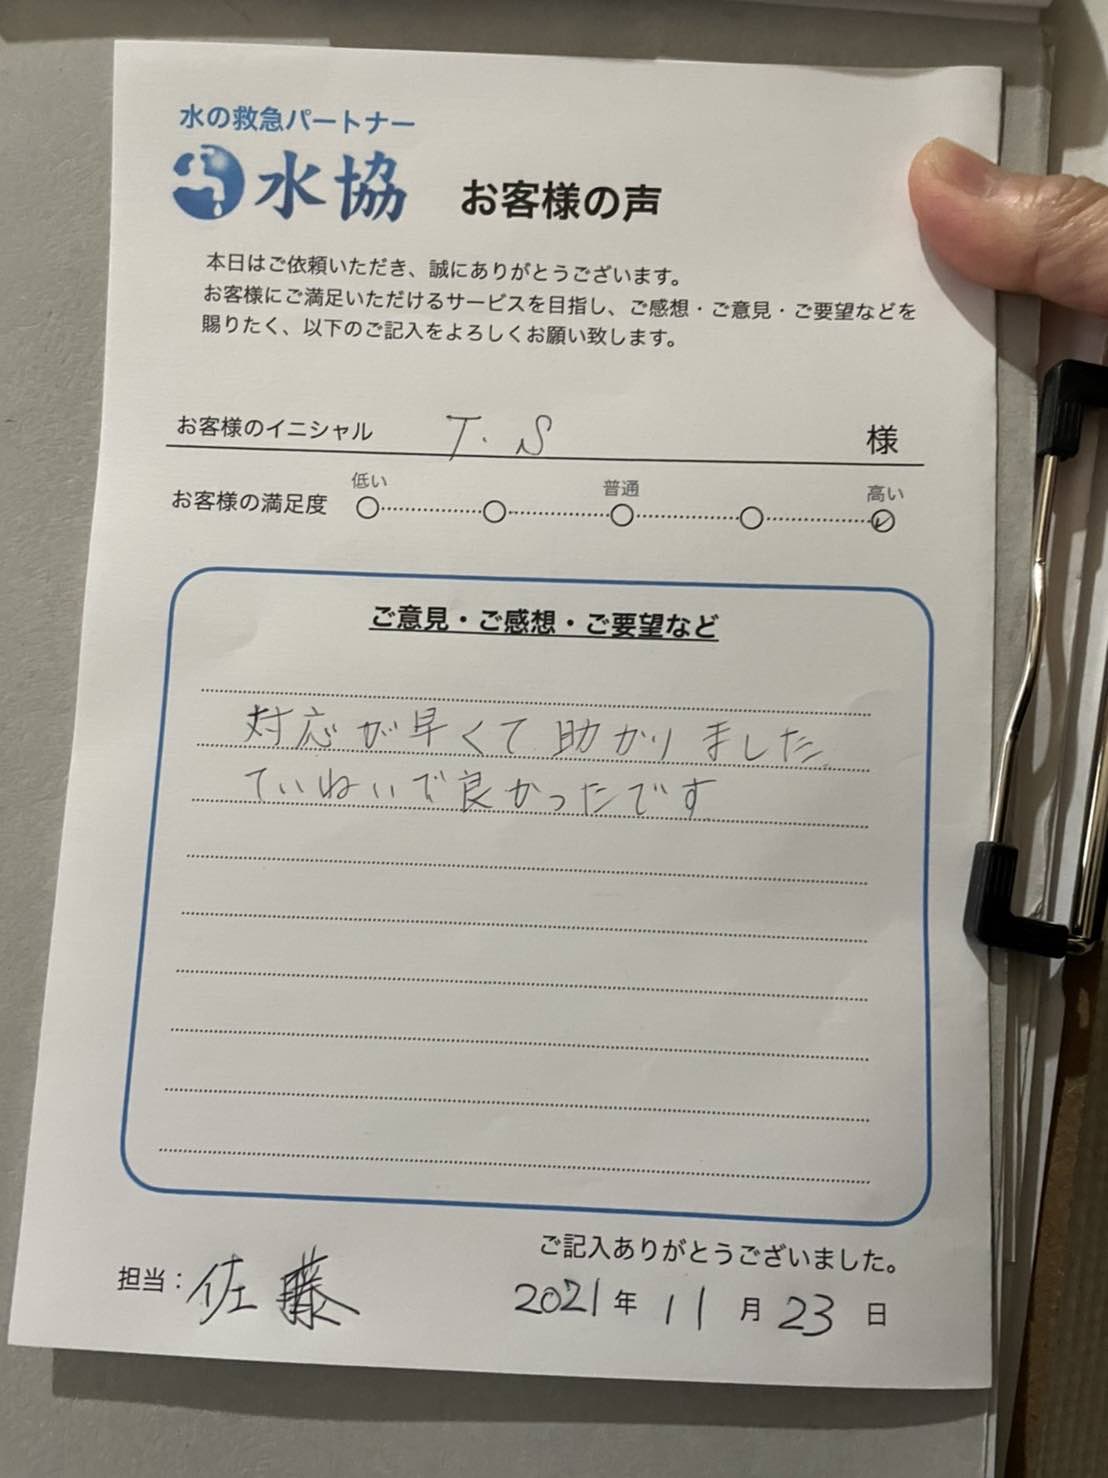 水の救急パートナー
水協 お客様の声
本日はご依頼いただき、誠にありがとうございます。
お客様にご満足いただけるサービスを目指し、ご感想・ご意見・ご要望などを
賜りたく、以下のご記入をよろしくお願い致します。
お客様のイニシャル T.S 様
低い 普通 高い
お客様の満足度
ご意見・ご感想・ご要望など
対応が早くて助かりました。
ていねいで良かったです
ご記入ありがとうございました。
担当：佐藤 2021年 11月 23日